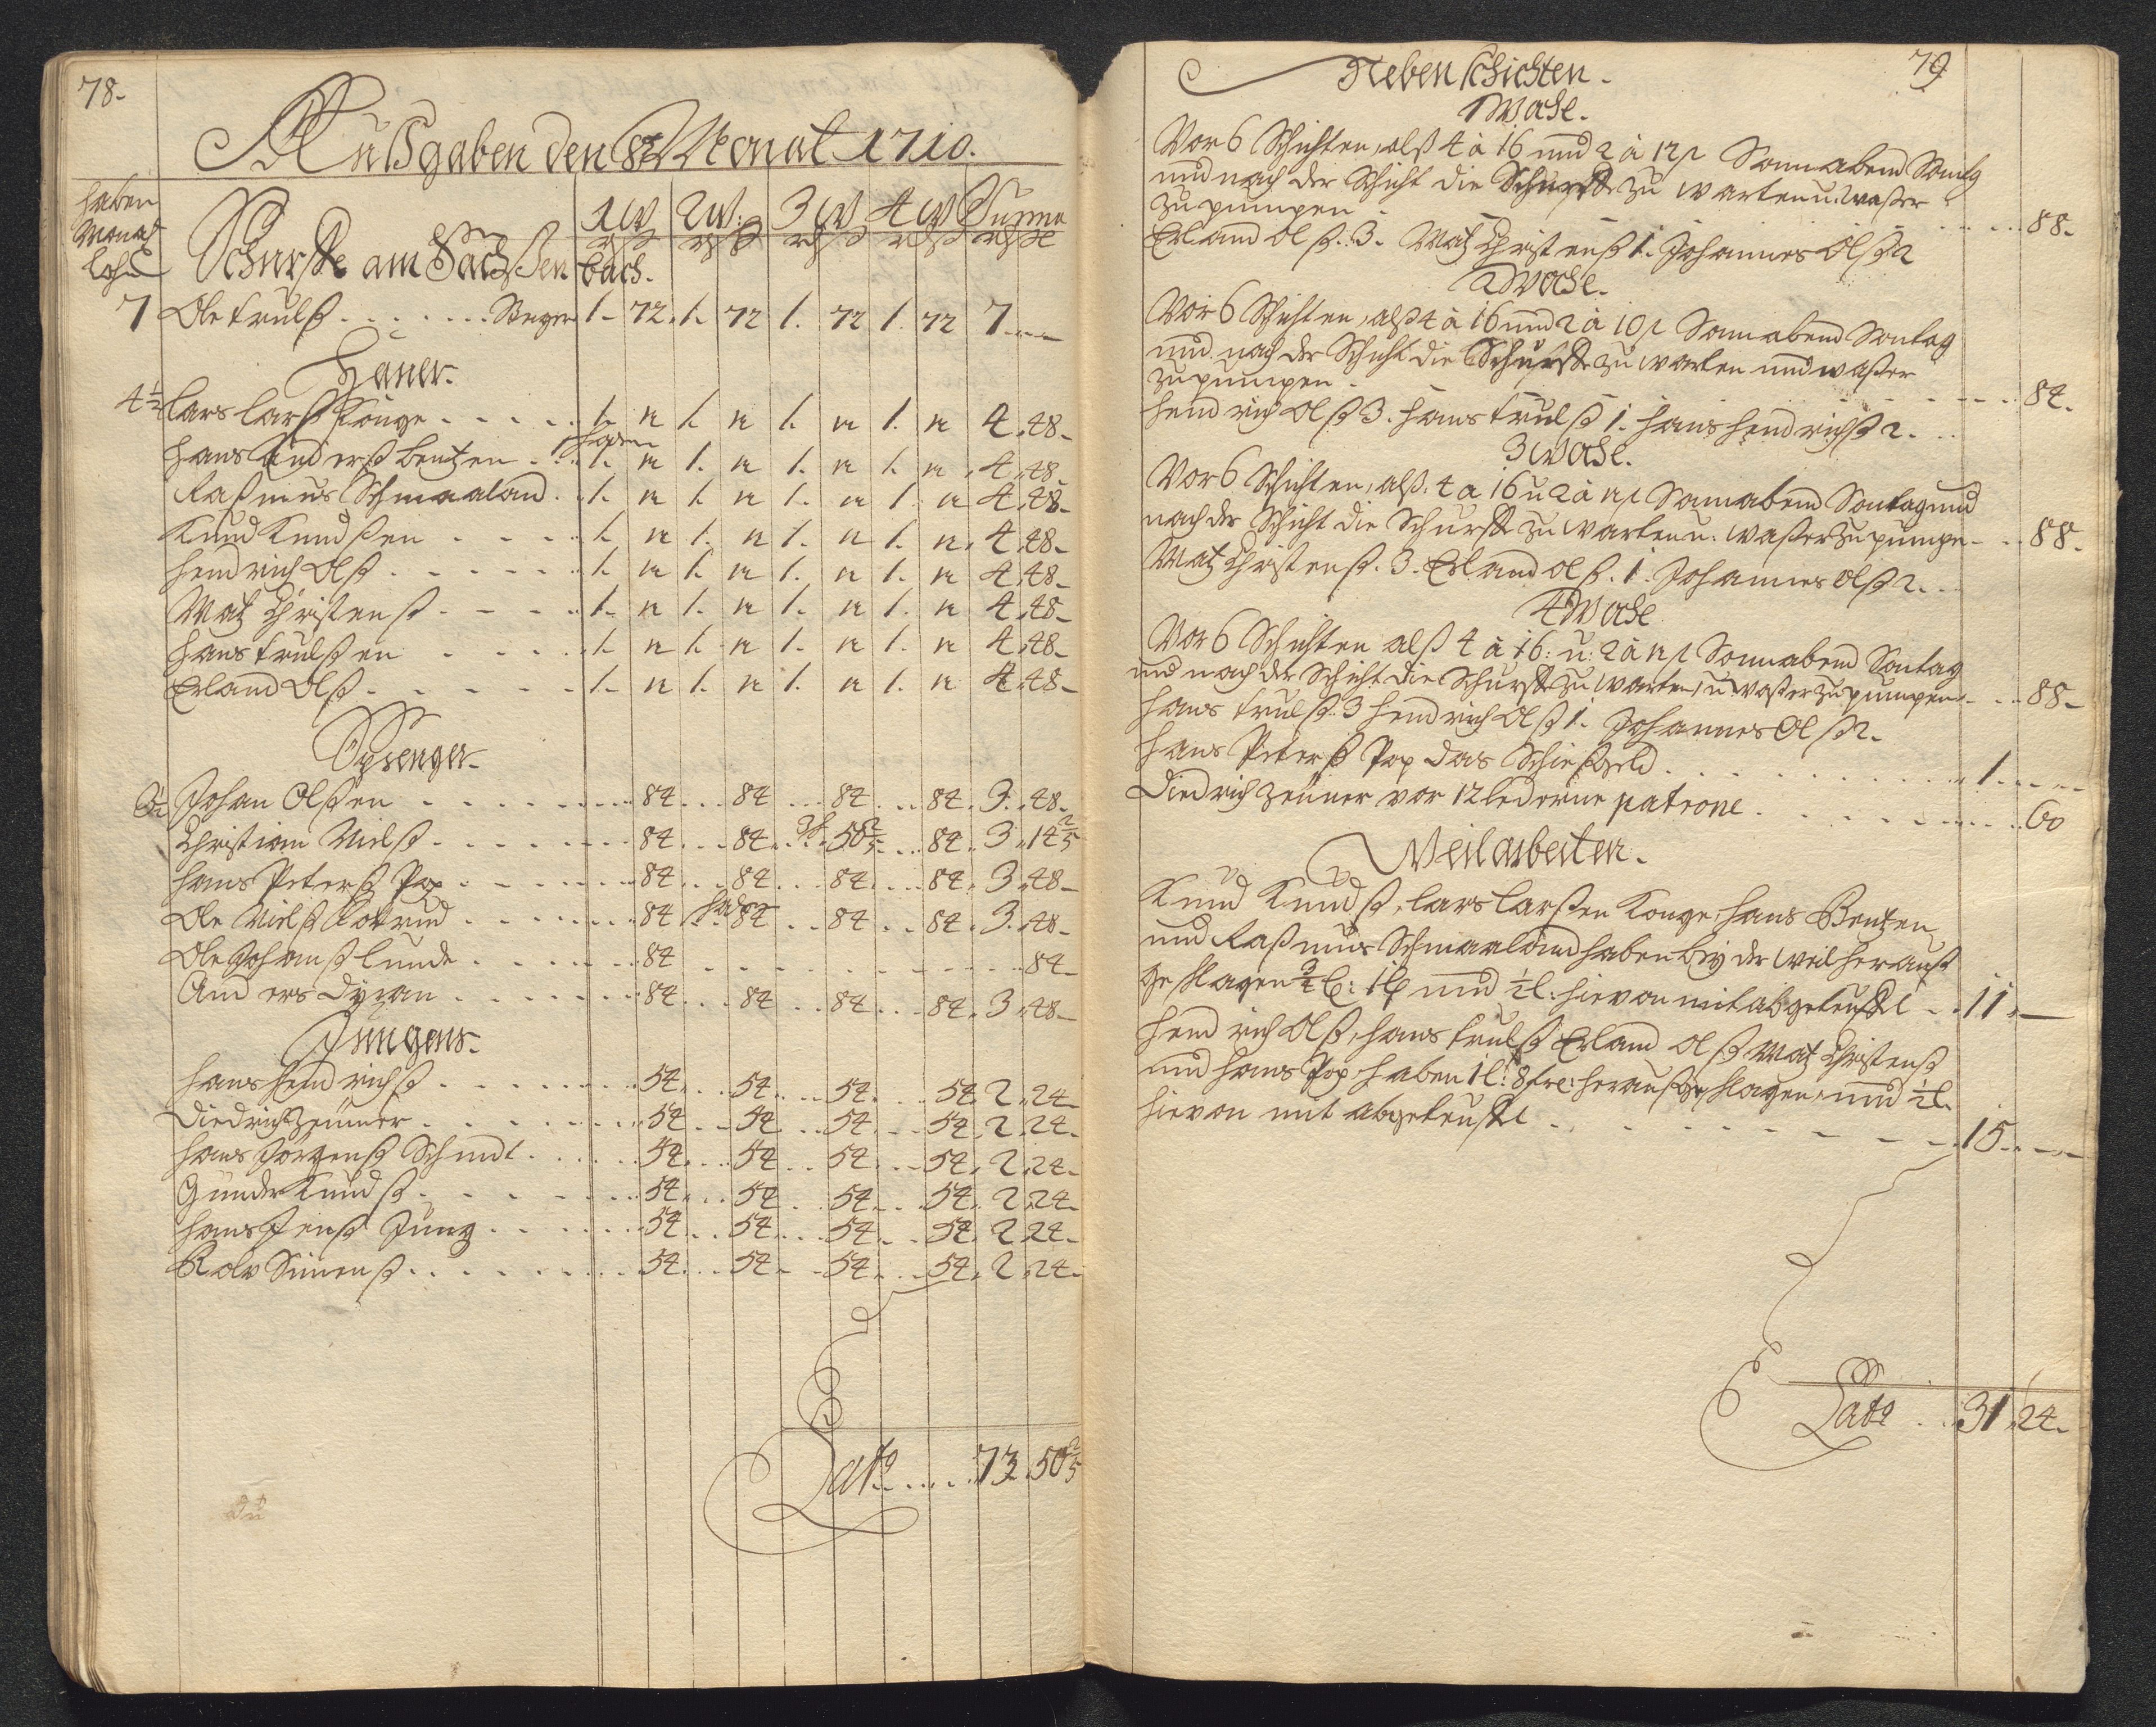 78.
Außgaben den 8 Monat 1710.
haben Monat lohn
1 W 2 W: 3 W 4 W Summa
rß rß rß rß rße
Schurffe am Sachßen bach.
7 Ole Trulß . . . . . . . Steiger 1. 72. 1. 72 1. 72 1. 72 7 . . .
Häuer.
4½ Lars Larß Konge . . . . . 1. 12 1. 12 1. 12 1. 12 4. 48.
Hans Anderß Bentzen . . . 1. 12 1. 12 1. 12 1. 12 4. 48.
Raßmus Schmaaland . . 1. 12 1. 12 1. 12 1. 12 4. 48.
Knud Knudßen . . . . 1. 12 1. 12 1. 12 1. 12. 4. 48.
Hendrich Olß . . . . . . 1. 12 1. 12 1. 12 1. 12 4. 48.
Matz Christenß . . . . 1. 12 1. 12 1. 12 1. 12 4. 48.
Hans Trulßen . . . . . 1. 12 1. 12 1. 12 1. 12 4. 48.
Erland Olß . . . . . . 1. 12 1. 12 1. 12 1. 12 4. 48.
Johan Olßen . . . . . . . . 84 . . . 84 . . . 84 . . . 84. 3. 48.
Christian Nielß . . . . . . . 84 . . . 84 . . . 50 2/5 . . . 84. 3. 14 2/5
Hans Peterß Pop . . . . . . 84 . . . 84 . . . 84 . . . 84. 3. 48.
Ole Nielß . . . . . . 84 84 . . 84 . . 84. 3. 48.
Ole Johanß Lunde . . . . . . 84 . . . . . . . . . . . 84.
Anders . . . . . . . 84 . . . 84 . . 84 . . . 84. 3. 48.
Jungens.
Hans Hendrichß . . . . . . . 54 . . . 54 . . . 54 . . . 54. 2. 24.
Diedrich Zeuner . . . . . . . 54 . . 54 . . . 54 . . . 54. 2. 24.
Hans Jörgenß Schmidt . . . . . 54 . . . 54 . . 54 . . . 54. 2. 24.
Gunder Knudß . . . . . . . . 54 . . . 54 . . 54 . . . 54. 2. 24.
Hans Jenß Jung . . . . . . 54 . . 54 . . . 54 . . 54. 2. 24.
Rolv Simenß . . . . . . . . . 54 . . . 54 . . 54 . . . 54. 2. 24.
Lat: . . . . 73. 50 2/5
79
Neben Schichten.
1 Woche.
Vor 6 Schichten, alß 4 à 16 und 2 à 12 ß Sonnabend Sontg
und nach der Schicht die Schurffe zu warten u. waßer
zu pumpen . . . . . . 88.
Erland Olß. 3. Matz Christenß 1. Johannes Olß 2
2 Woche.
Vor 6 Schichten, alß 4 à 16 und 2 à 10 ß Sonnabend Sontag
und nach der Schicht die Schurffe zu warten und waßer
zu pumpen . . . . . . . . 84.
Hendrich Olß 3. Hans Trulß 1. Hans Hendrichß 2. . .
3 Woche.
Vor 6 Schichten, alß. 4 à 16 u 2 à 12 ß Sonnabend Sontag und
nach der Schicht die Schurffe zu warten u. waßer zu pumpen . . 88.
Matz Christenß. 3. Erland Olß. 1. Johannes Olß 2. . .
4 Woche
Vor 6 Schichten alß 4 à 16: u: 2 à 12 ß Sonnabend Sontag
und nach der Schicht die Schurffe zu warten, u waßer zu pumpen . . . 88.
Hans Trulß. 3 Hendrich Olß 1. Johannes Olß 2.
Hans Peterß Pop das Schießgeld . . . . . . . . . . . . 1. . . .
Diedrich Zeuner vor 12 lederne patrone . . . . . . . . . 60
Weilarbeiten.
Knud Knudß, Lars Larßen Konge, Hans Bentzen
und Raßmus Schmaaland haben bey der weil herauß
geschlagen ¾ l: 1 und ½ l: hievon mit abgeteufft . . 11 . —
Hendrich Olß, Hans Trulß Erland Olß Matz Christenß
und Hans Pop haben 1 l: 8 herauß geschlagen, und ½ l.
hievon mit abgeteufft . . . . . . . . . 15. . . .
Lat: . . 31. 24.